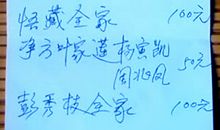 悟藏全家 100元
净方 叶家莲 杨寅凯
周兆凤 50元
彭秀枝全家 100元